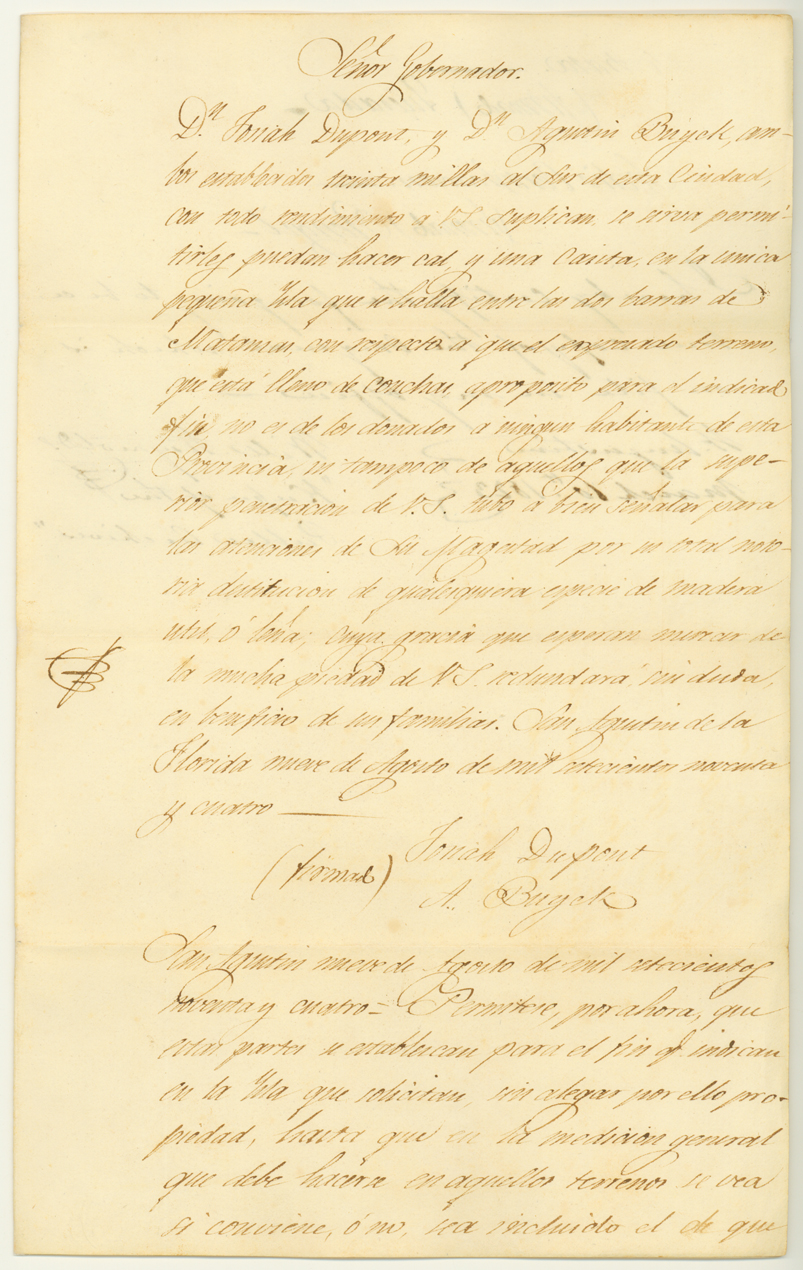 Señor Gobernador.
Dn. Josiah Dupont, y Dn Agustin Buyck, am-
bos establecidos treinta millas al Sur de esta Ciudad,
con todo rendimiento á V.S. Suplican, se sirva permi-
tirles puedan hacer cal, y una Casita, en la unica
pequeña Ysla que se halla entre las dos barras de
Matanzas, con respecto á que el expresado terreno,
que está lleno de conchas, aproposito para el indicado
fin, no es de los donados á ningun habitante de esta
Provincia, ni tampoco de aquellos que la supe-
rior penetracion de V.S. tubo á bien señalar para
las atenciones de Su Magestad por su total noto-
ria destitucion de qualesquiera especie de madera
util, ó leña; cuya gracia que esperan merecer de
la mucha piedad de V.S. redundará, sin duda,
en beneficio de sus familias. San Agustin de la
Florida nueve de Agosto de mil setecientos noventa
y cuatro
Josiah Dupont
(firmado)
A. Buyck
San Agustin nueve de Agosto de mil setecientos
noventa y cuatro = Permitese, por ahora, que
estas partes se establescan para el fin q. indican
en la Ysla que solicitan, sin alegar por ello pro-
piedad, hasta que en la medicion general
que debe hacerse en aquellos terrenos se vea
si conviene, ó no, sea incluido el de que